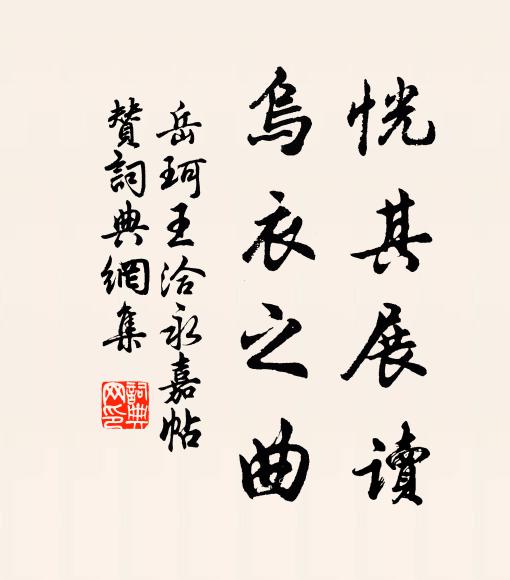 恍其展讀
烏衣之曲
岳珂王洽永嘉帖
贊詞典網集
詞典網印